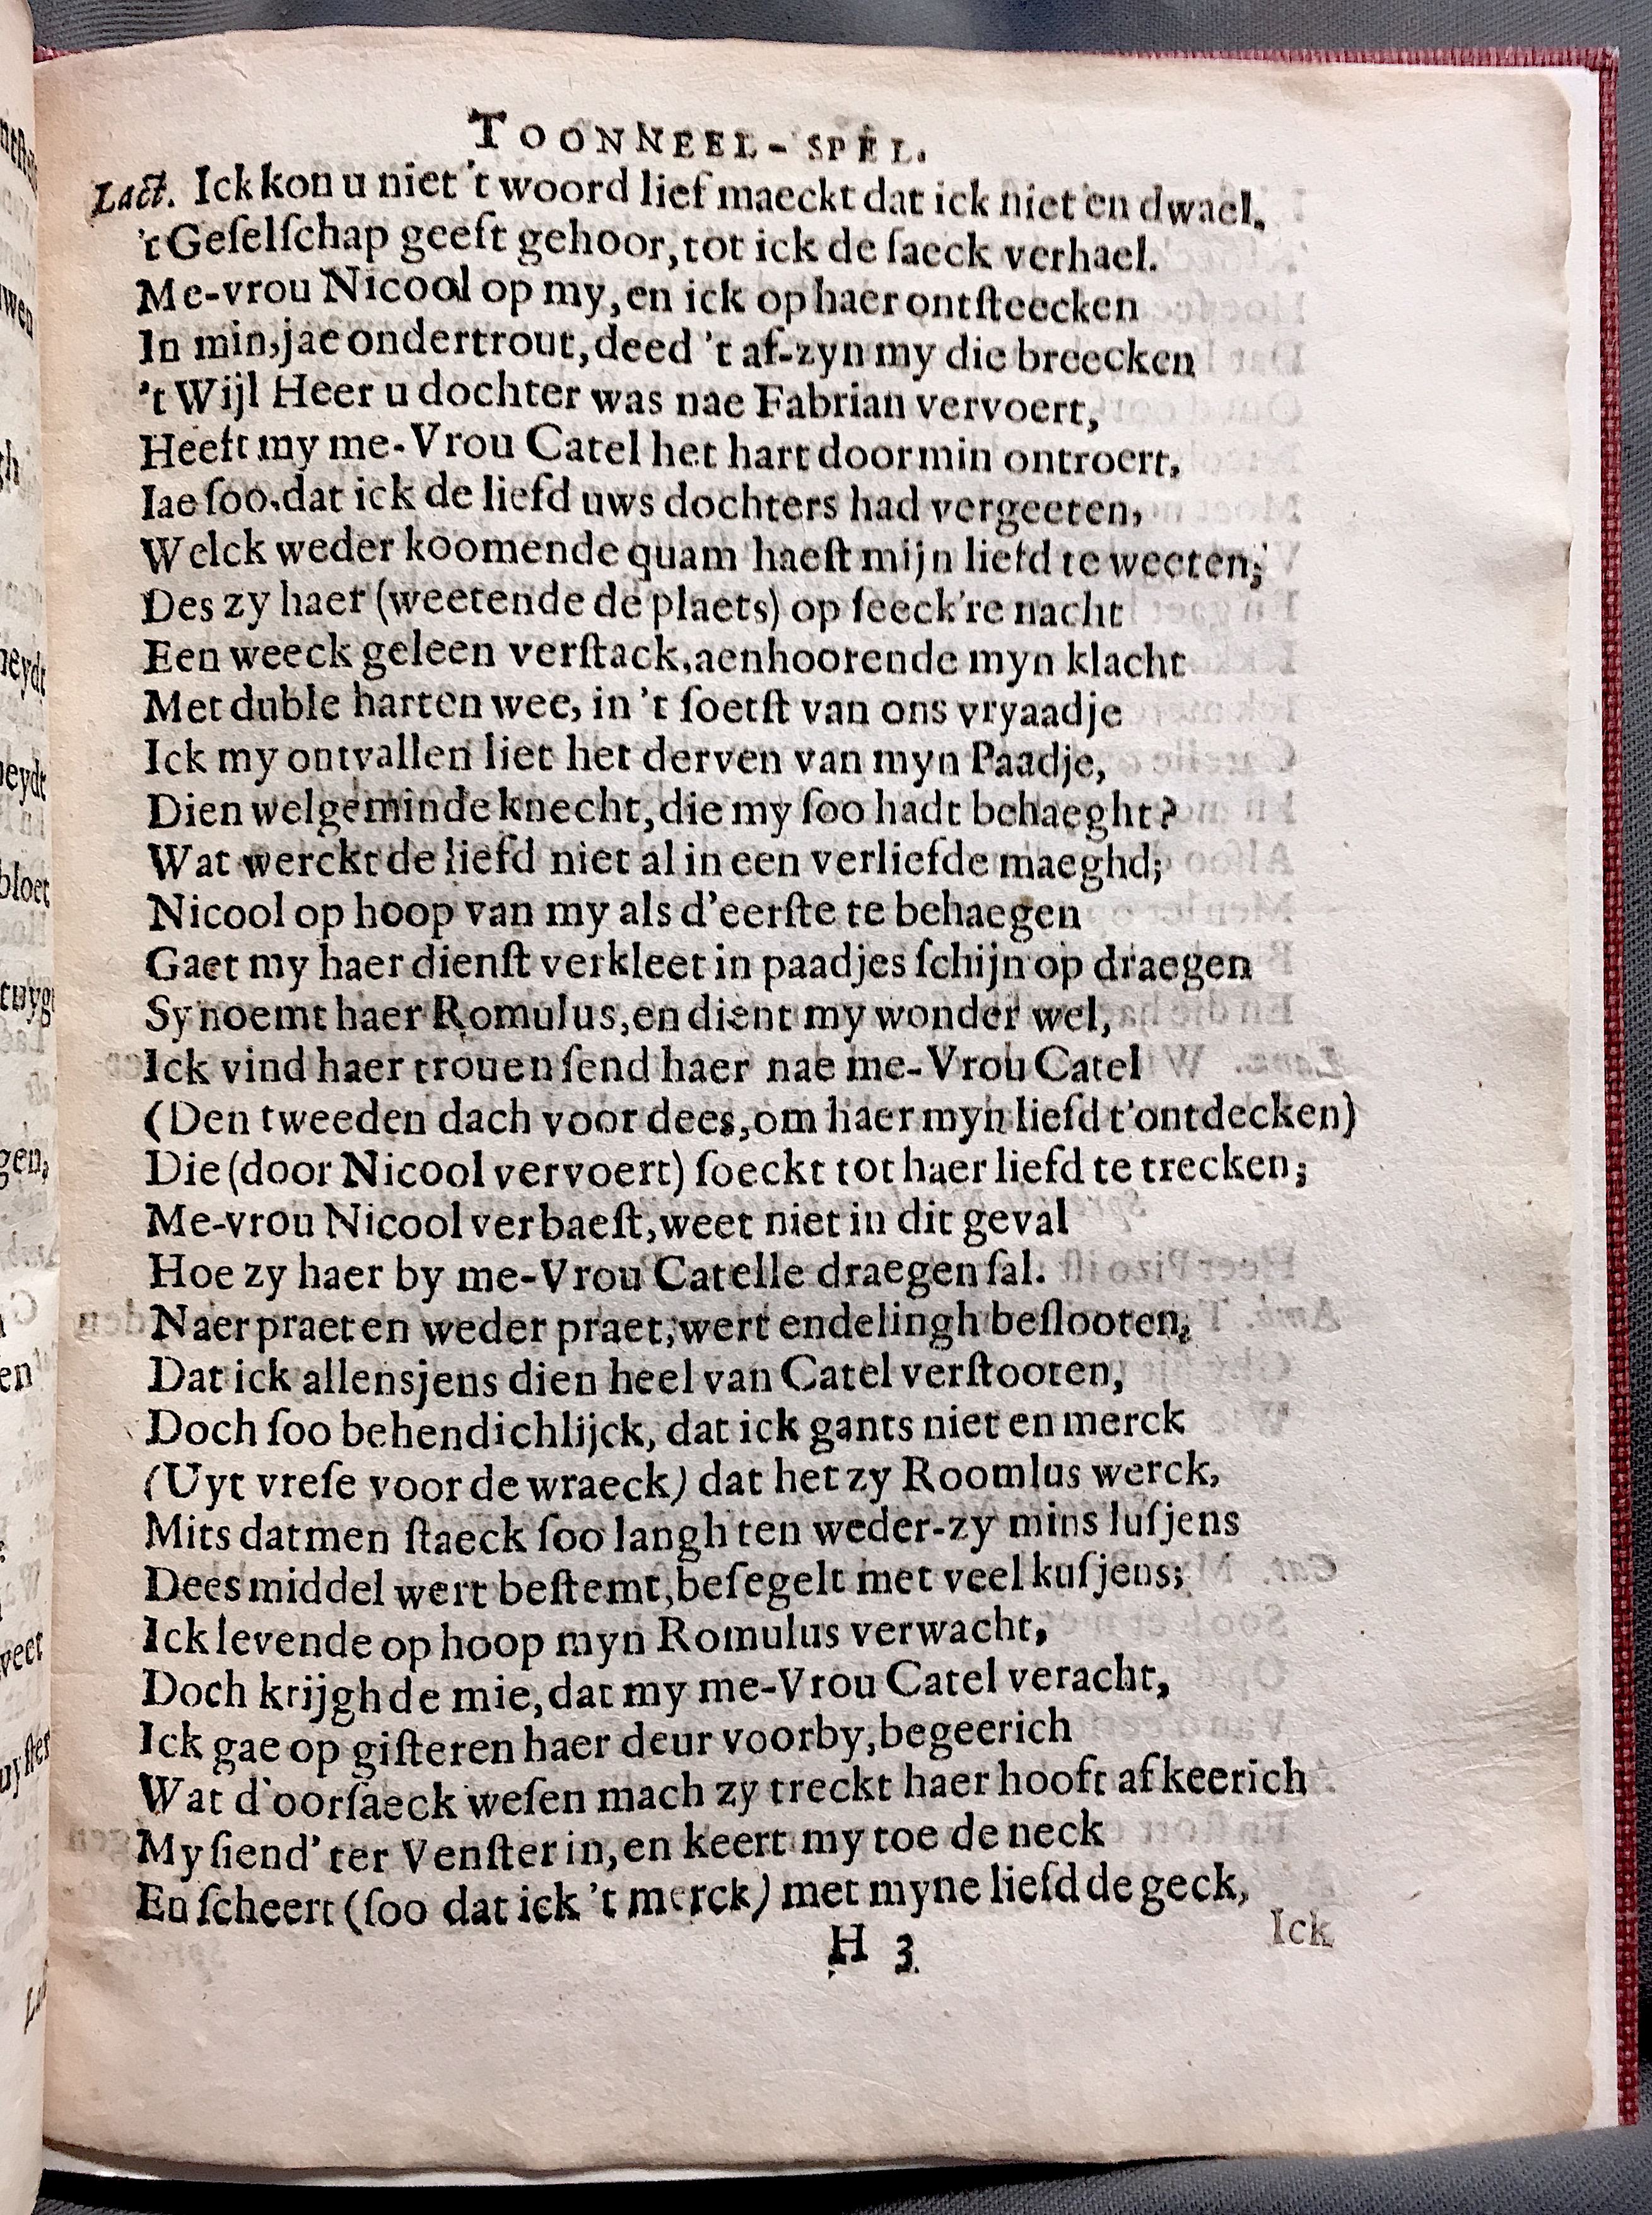 TOONNEEL-SPEL.
Lact. Ick kon u niet 't woord lief maeckt dat ick niet en dwael.
't Geſelſchap geeft gehoor, tot ick de ſaeck verhael.
Me-vrou Nicool op my, en ick op haer ontſteecken
In min, jae ondertrout, deed 't af-zyn my die breecken
't Wijl Heer u dochter was nae Fabrian vervoert,
Heeft my me-Vrou Catel het hart door min ontroert,
Iae ſoo, dat ick de liefd uws dochters had vergeeten,
Welck weder koomende quam haeſt mijn liefd te weeten;
Des zy haer (weetende de plaets) op ſeeck're nacht
Een weeck geleen verſtack, aenhoorende myn klacht
Met duble harten wee, in 't ſoetſt van ons vryaadje
Ick my ontvallen liet het derven van myn Paadje,
Dien welgeminde knecht, die my ſoo hadt behaeght?
Wat werckt de liefd niet al in een verliefde maeghd;
Nicool op hoop van my als d'eerſte te behaegen
Gaet my haer dienſt verkleet in paadjes ſchijn op draegen
Sy noemt haer Romulus, en dient my wonder wel,
Ick vind haer trou en ſend haer nae me-Vrou Catel
(Den tweeden dach voor dees, om haer myn liefd t'ontdecken)
Die (door Nicool vervoert) ſoeckt tot haer liefd te trecken;
Me-vrou Nicool verbaeſt, weet niet in dit geval
Hoe zy haer by me-Vrou Catelle draegen ſal.
Naer praet en weder praet, wert endelingh beſlooten,
Dat ick allensjens dien heel van Catel verſtooten,
Doch ſoo behendichlijck, dat ick gants niet en merck
(Uyt vreſe voor de wraeck) dat het zy Roomlus werck,
Mits datmen ſtaeck ſoo langh ten weder-zy mins luſjens
Dees middel wert beſtemt, beſegelt met veel kuſjens;
Ick levende op hoop myn Romulus verwacht,
Doch krijgh de mie, dat my me-Vrou Catel veracht,
Ick gae op giſteren haer deur voorby, begeerich
Wat d'oorſaeck weſen mach zy treckt haer hooft afkeerich
My ſiend' ter Venſter in, en keert my toe de neck
En ſcheert (ſoo dat ick 't merck) met myne liefd de geck,
H 3
Ick